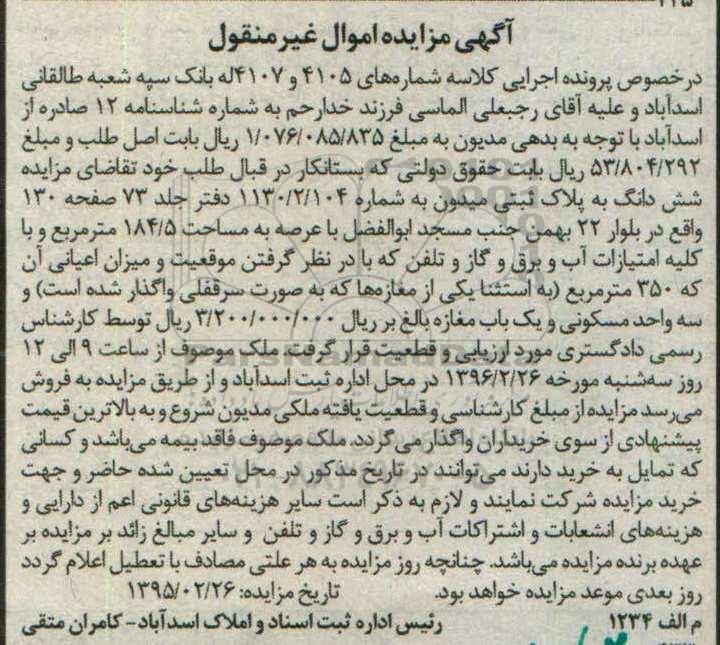 آگهی مزایده اموال غیر منقول
درخصوص پرونده اجرایی کلاسه شماره‌های ۴۱۰۵ و ۴۱۰۷له بانک سپه شعبه طالقانی
اسدآباد و علیه آقای رجبعلی الماسی فرزند خدارحم به شماره شناسنامه ۱۲ صادره از
اسدآباد با توجه به بدهی مدیون به مبلغ ۱/۰۷۶/۰۸۵/۸۳۵ ریال بابت اصل طلب و مبلغ
۵۳/۸۰۴/۲۹۲ ریال بابت حقوق دولتی که بستانکار در قبال طلب خود تقاضای مزایده
شش دانگ به پلاک ثبتی میدون به شماره ۱۱۳۰/۲/۱۰۴ دفتر جلد ۷۳ صفحه ۱۳۰
واقع در بلوار ۲۲ بهمن جنب مسجد ابوالفضل با عرصه به مساحت ۱۸۴/۵ مترمربع و با
کلیه امتیازات آب و برق و گاز و تلفن که با در نظر گرفتن موقعیت و میزان اعیانی آن
که ۳۵۰ مترمربع (به استثنا یکی از مغازه‌ها که به صورت سرقفلی واگذار شده است) و
سه واحد مسکونی و یک باب مغازه بالغ بر ریال ۳/۲۰۰/۰۰۰/۰۰۰ ریال توسط کارشناس
رسمی دادگستری مورد ارزیابی و قطعیت قرار گرفت. ملک موصوف از ساعت ۹ الی ۱۲
روز سه‌شنبه مورخه ۱۳۹۶/۲/۲۶ در محل اداره ثبت اسدآباد و از طریق مزایده به فروش
می‌رسد مزایده از مبلغ کارشناسی و قطعیت یافته ملکی مدیون شروع و به بالاترین قیمت
پیشنهادی از سوی خریداران واگذار می‌گردد. ملک موصوف فاقد بیمه می‌باشد و کسانی
که تمایل به خرید دارند می‌توانند در تاریخ مذکور در محل تعیین شده حاضر و جهت
خرید مزایده شرکت نمایند و لازم به ذکر است سایر هزینه‌های قانونی اعم از دارایی و
هزینه‌های انشعابات و اشتراکات آب و برق و گاز و تلفن و سایر مبالغ زائد بر مزایده بر
عهده برنده مزایده می‌باشد. چنانچه روز مزایده به هر علتی مصادف با تعطیل اعلام گردد
روز بعدی موعد مزایده خواهد بود. تاریخ مزایده: ۱۳۹۵/۰۲/۲۶
م الف ۱۲۳۴ رئیس اداره ثبت اسناد و املاک اسدآباد- کامران متقی